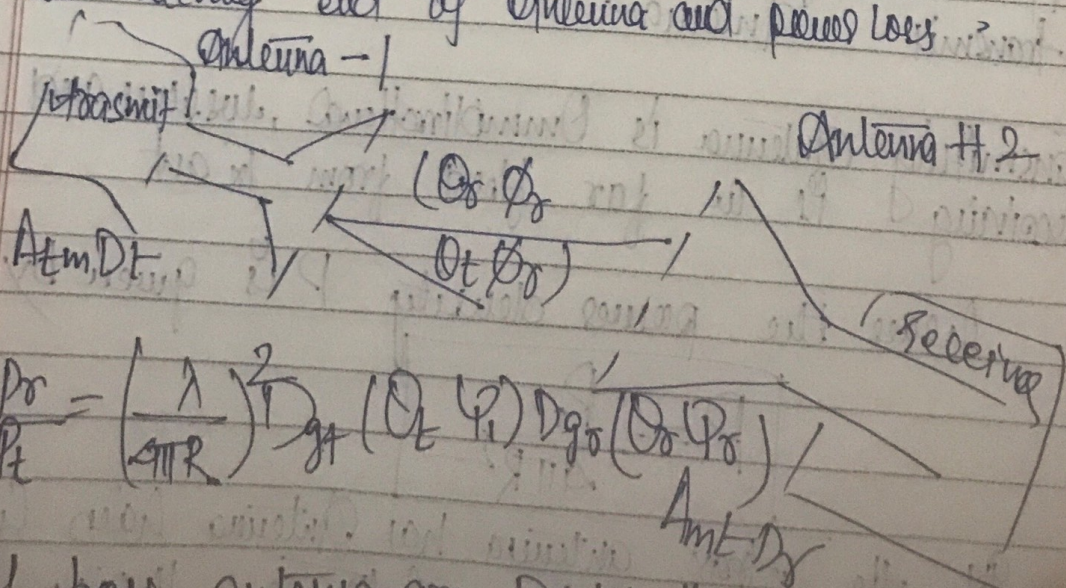 end of Antenna and power loss ?
Antenna - 1
transmit
Antenna # 2
(θr φr
θt φr)
Atm, Dt
Receiving
Pr/Pt = (λ/4πR)² Dgt (θt φt) Dgr (θr φr)
Amt Dr